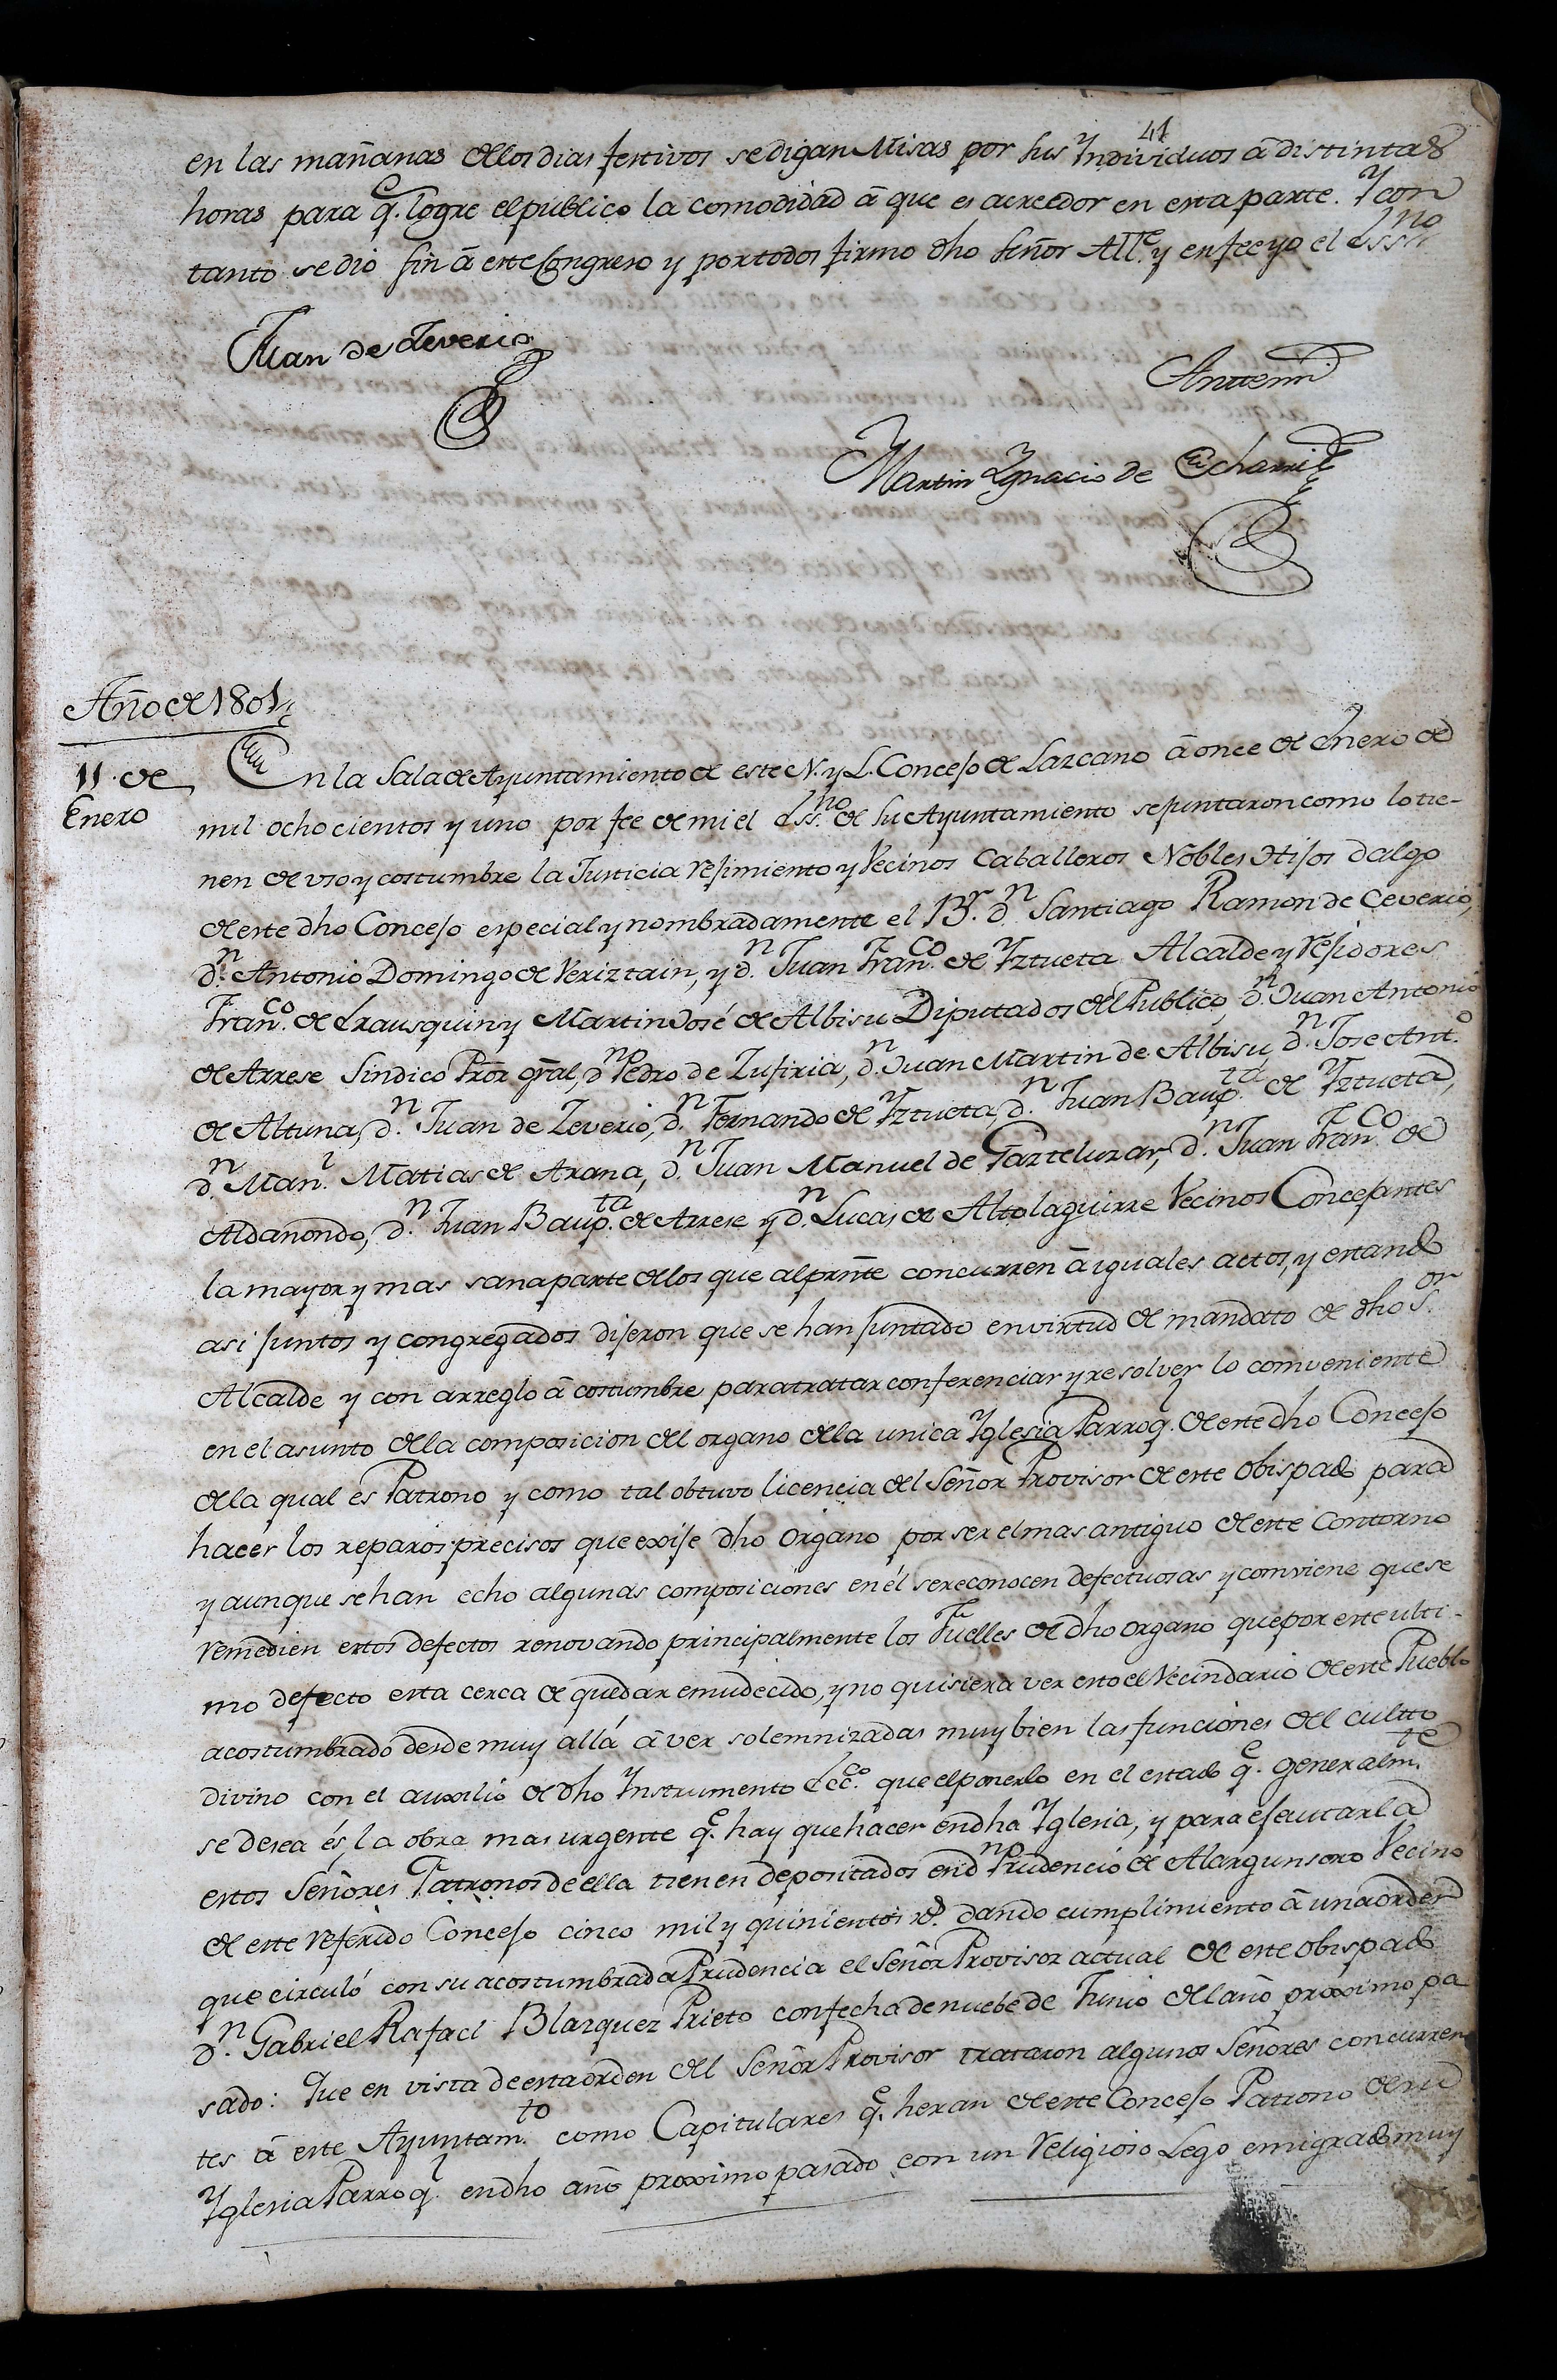 41
en las mañanas de los dias festivos se digan Misas por sus Yndividuos á distintas
horas para q.e logre el publico la comodidad á que es acreedor en esta parte. Y con
tanto se dió fin á este Congreso y por todos firmo dho señor All.e y en fee yo el Ess.no
Juan de Zeverio
Antemi
Martin Ygnacio de Echarri
Año de 1801,,
11 de
Enero
En la Sala de Ayuntamiento de este N. y L. Concejo de Lazcano á once de Enero de
mil ochocientos y uno por fee de mi el Ess.no de su Ayuntamiento se juntaron como lo tie-
nen de uso y costumbre la Justicia rejimiento y Vecinos Caballeros Nobles Hijos dalgo
de este dho Concejo especial y nombradamente el B.r d.n Santiago Ramon de Ceverio,
d.n Antonio Domingo de Veriztain, y d.n Juan Fran.co de Yztueta Alcalde y rejidores
Fran.co de Lrausquin y Martin José de Albisu Diputados del Publico, d.n Juan Antonio
de Arrese Sindico Pror gral, d.n Pedro de Zufiria, d.n Juan Martin de Albisu, d.n Jose Ant.o
de Altuna, d.n Juan de Zeverio, d.n Fernando de Yztueta, d.n Juan Baup.ta de Yztueta,
d.n Man.l Matias de Arana, d.n Juan Manuel de Gazteluzar, d.n Juan Fran.co de
Aldanondo, d.n Juan Baup.ta de Arrese y d.n Lucas de Altolaguirre Vecinos Concejantes
la mayor y mas sana parte de los que al prnte concurren á iguales actos, y estando
asi juntos y congregados dijeron que se han juntado en virtud de mandato de dho S.or
Alcalde y con arreglo á costumbre para tratar conferenciar y resolver lo conveniente
en el asunto de la composicion del organo de la unica Yglesia Parroq.l de este dho Concejo
de la qual es Patrono y como tal obtuvo licencia del Señor Provisor de este Obispado para
hacer los reparos precisos que exije dho Organo por ser el mas antiguo de este Contorno
y aunque se han echo algunas composiciones en él se reconocen defectuosas y conviene que se
remedien estos defectos renovando principalmente los Fuelles de dho organo que por este ulti-
mo defecto esta cerca de quedar emudecido, y no quisiera ver esto el Vecindario de este Pueblo
acostumbrado desde muy allá á ver solemnizadas muy bien las funciones del cultto
divino con el auxilio de dho Ynstrumento Ecc.co que el ponerlo en el estado q.e generalm.te
se desea és, la obra mas urgente q.e hay que hacer en dha Yglesia, y para ejecutarla
estos Señores Patronos de ella tienen depositados en d.n Prudencio de Alargunsoro Vecino
de este referido Concejo cinco mil y quinientos r.s dando cumplimiento á una orden
que circuló con su acostumbrada Prudencia el Señor Provisor actual de este obispado
d.n Gabriel Rafael Blazquez Prieto con fecha de nuebe de Junio del año proximo pa
sado: Que en vista de esta orden del Señor Provisor trataron algunos Señores concurren
tes á este Ayuntam.to como Capitulares q.e heran de este Concejo Patrono de su
Yglesia Parroq.l en dho año proximo pasado con un religioso Lego emigrado muy